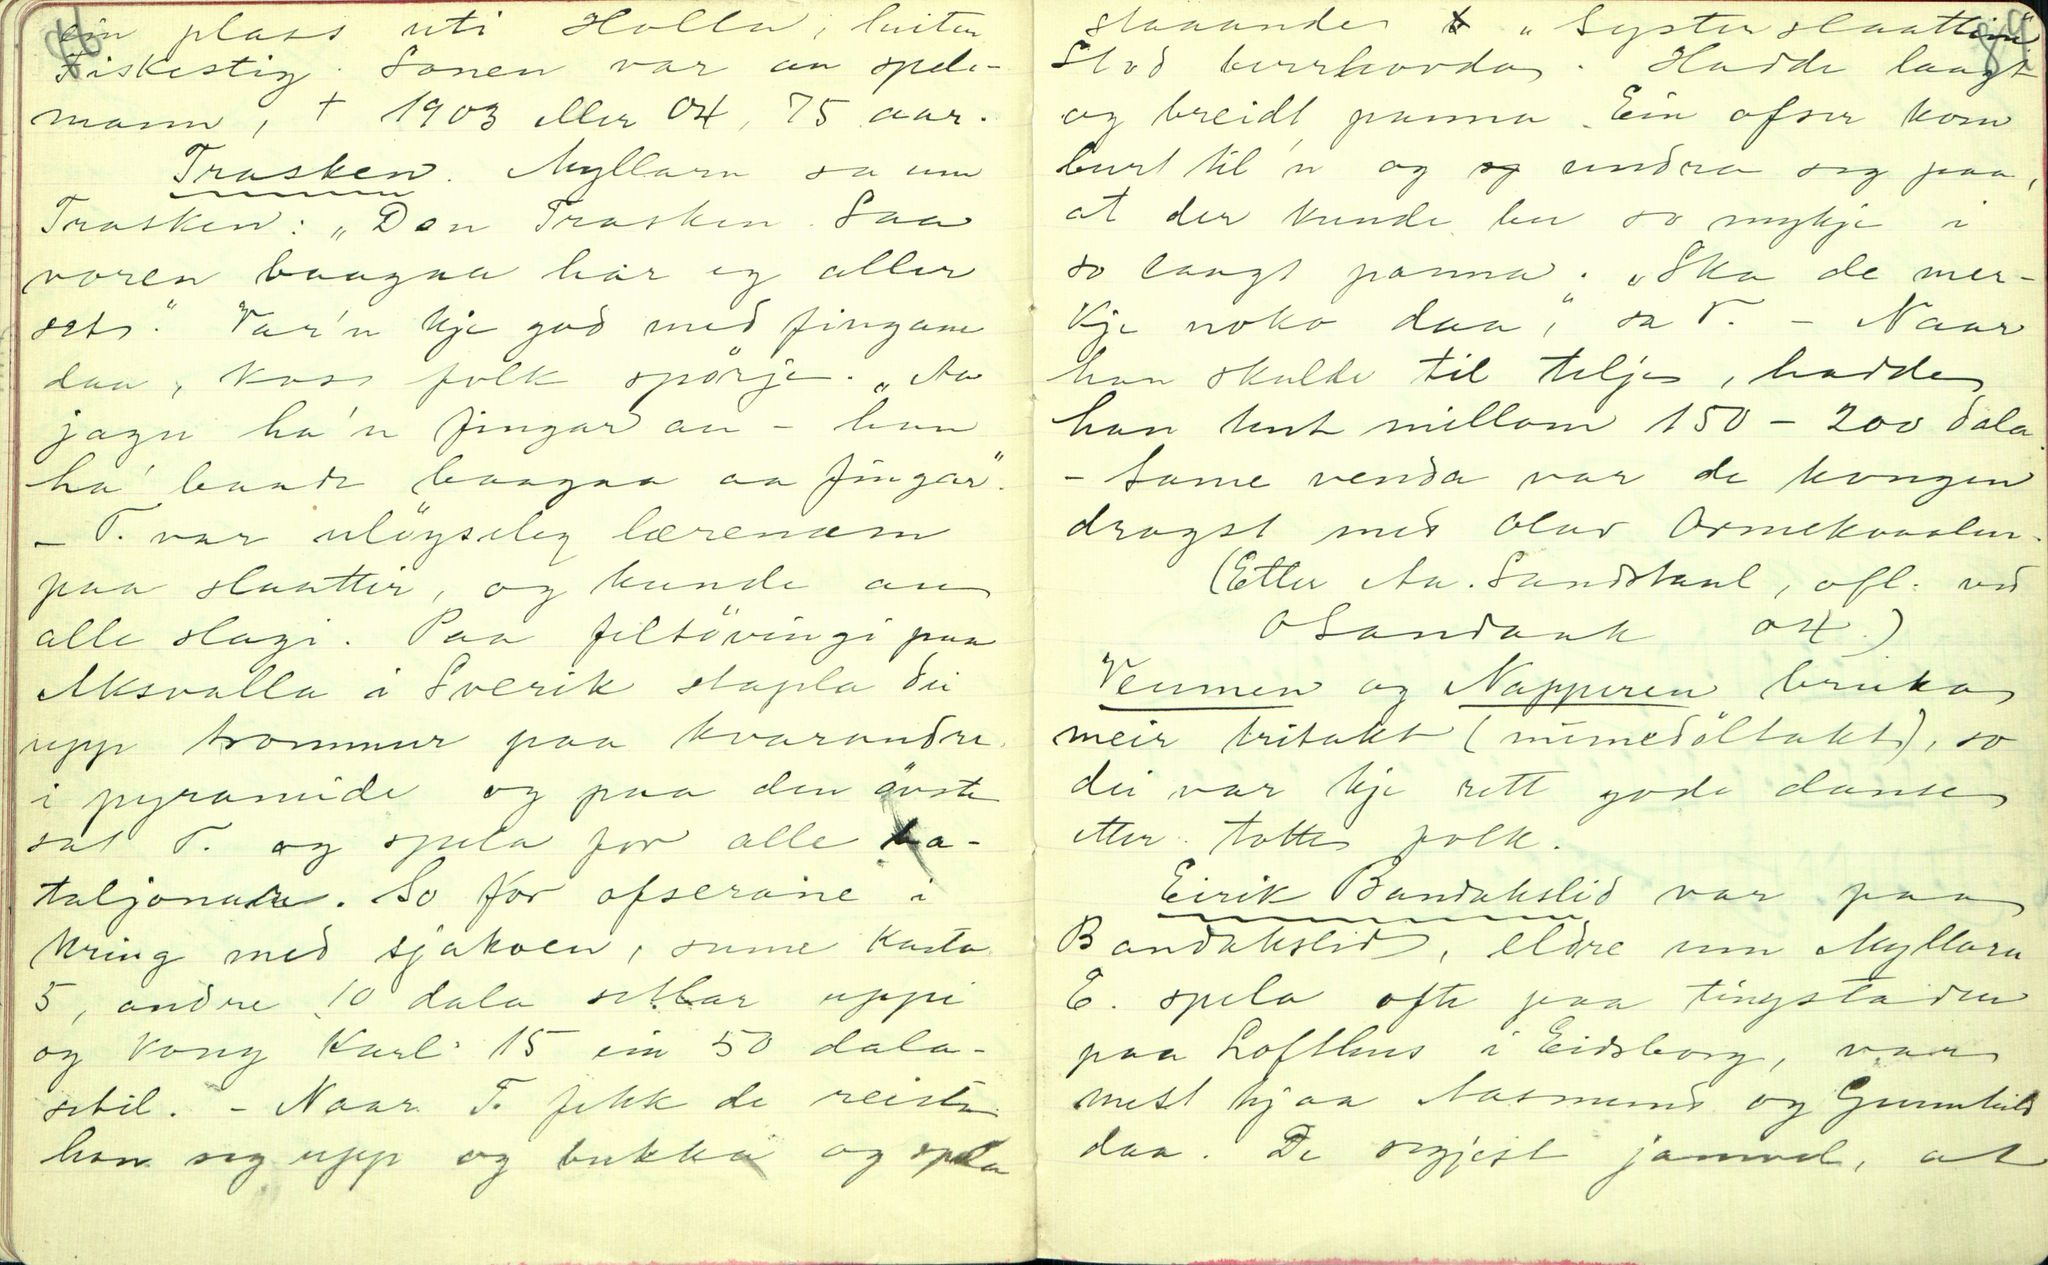 ein plass uti Holla, heiter
Fiskestig. Sonen var au spele-
mann, † 1903 eller 04, 75 aar.
Trasken. Myllarn sa um
Trasken: „Den Trasken. Saa
voren baagaa har eg aller
sets". Var'n kje god med fingane
daa, kass folk spörje. „Aa
jagu ha'n fingar au – han
ha' baade baagaa aa fingar".
– T. var ulöyseleg lærenæm
paa slaattir, og kunde au
alle slagi. Paa feltövingi paa
Aksvalla i Sverik stapla dei
upp trommur paa kvarandre.
i pyramide og paa den övste
sat T. og spela for alle ba-
taljonar. So for ofserane i
kring med sjakoen, sume kasta
5, andre 10 dala setlar uppi
og kong Karl 15 ein 50 dala-
setil. – Naar T. fekk de reiste
han seg upp og bukka og spela
84
staaande „Systerslaattine"
Stod berrhovda. Hadde laagt
og breidt panna. Ein ofser kom
burt til'n og undra seg paa,
at der kunde bu so mykje i
so laagt panna. „Ska de mer-
kje noko daa", sa T. – Naar
han skulde til telje, hadde
han tent millom 150 – 200 dala.
– Same venda var de kongen
drogst med Olav Ormekaalen.
(Etter Aa. Sandstaul, ofl. ved
O Sandaak 04.)
Veumen og Napperen bruka
meir tritakt (nimedöltakt), so
dei var kje rett gode danse
etter totte folk.
Eirik Bandakslid var paa
Bandakslid, eldre enn Myllarn
E. spela ofte paa tingstaden
paa Lofthus i Eidsborg, var
mest hjaa Aasmund og Gunnhild
daa. De segjest jamvel, at